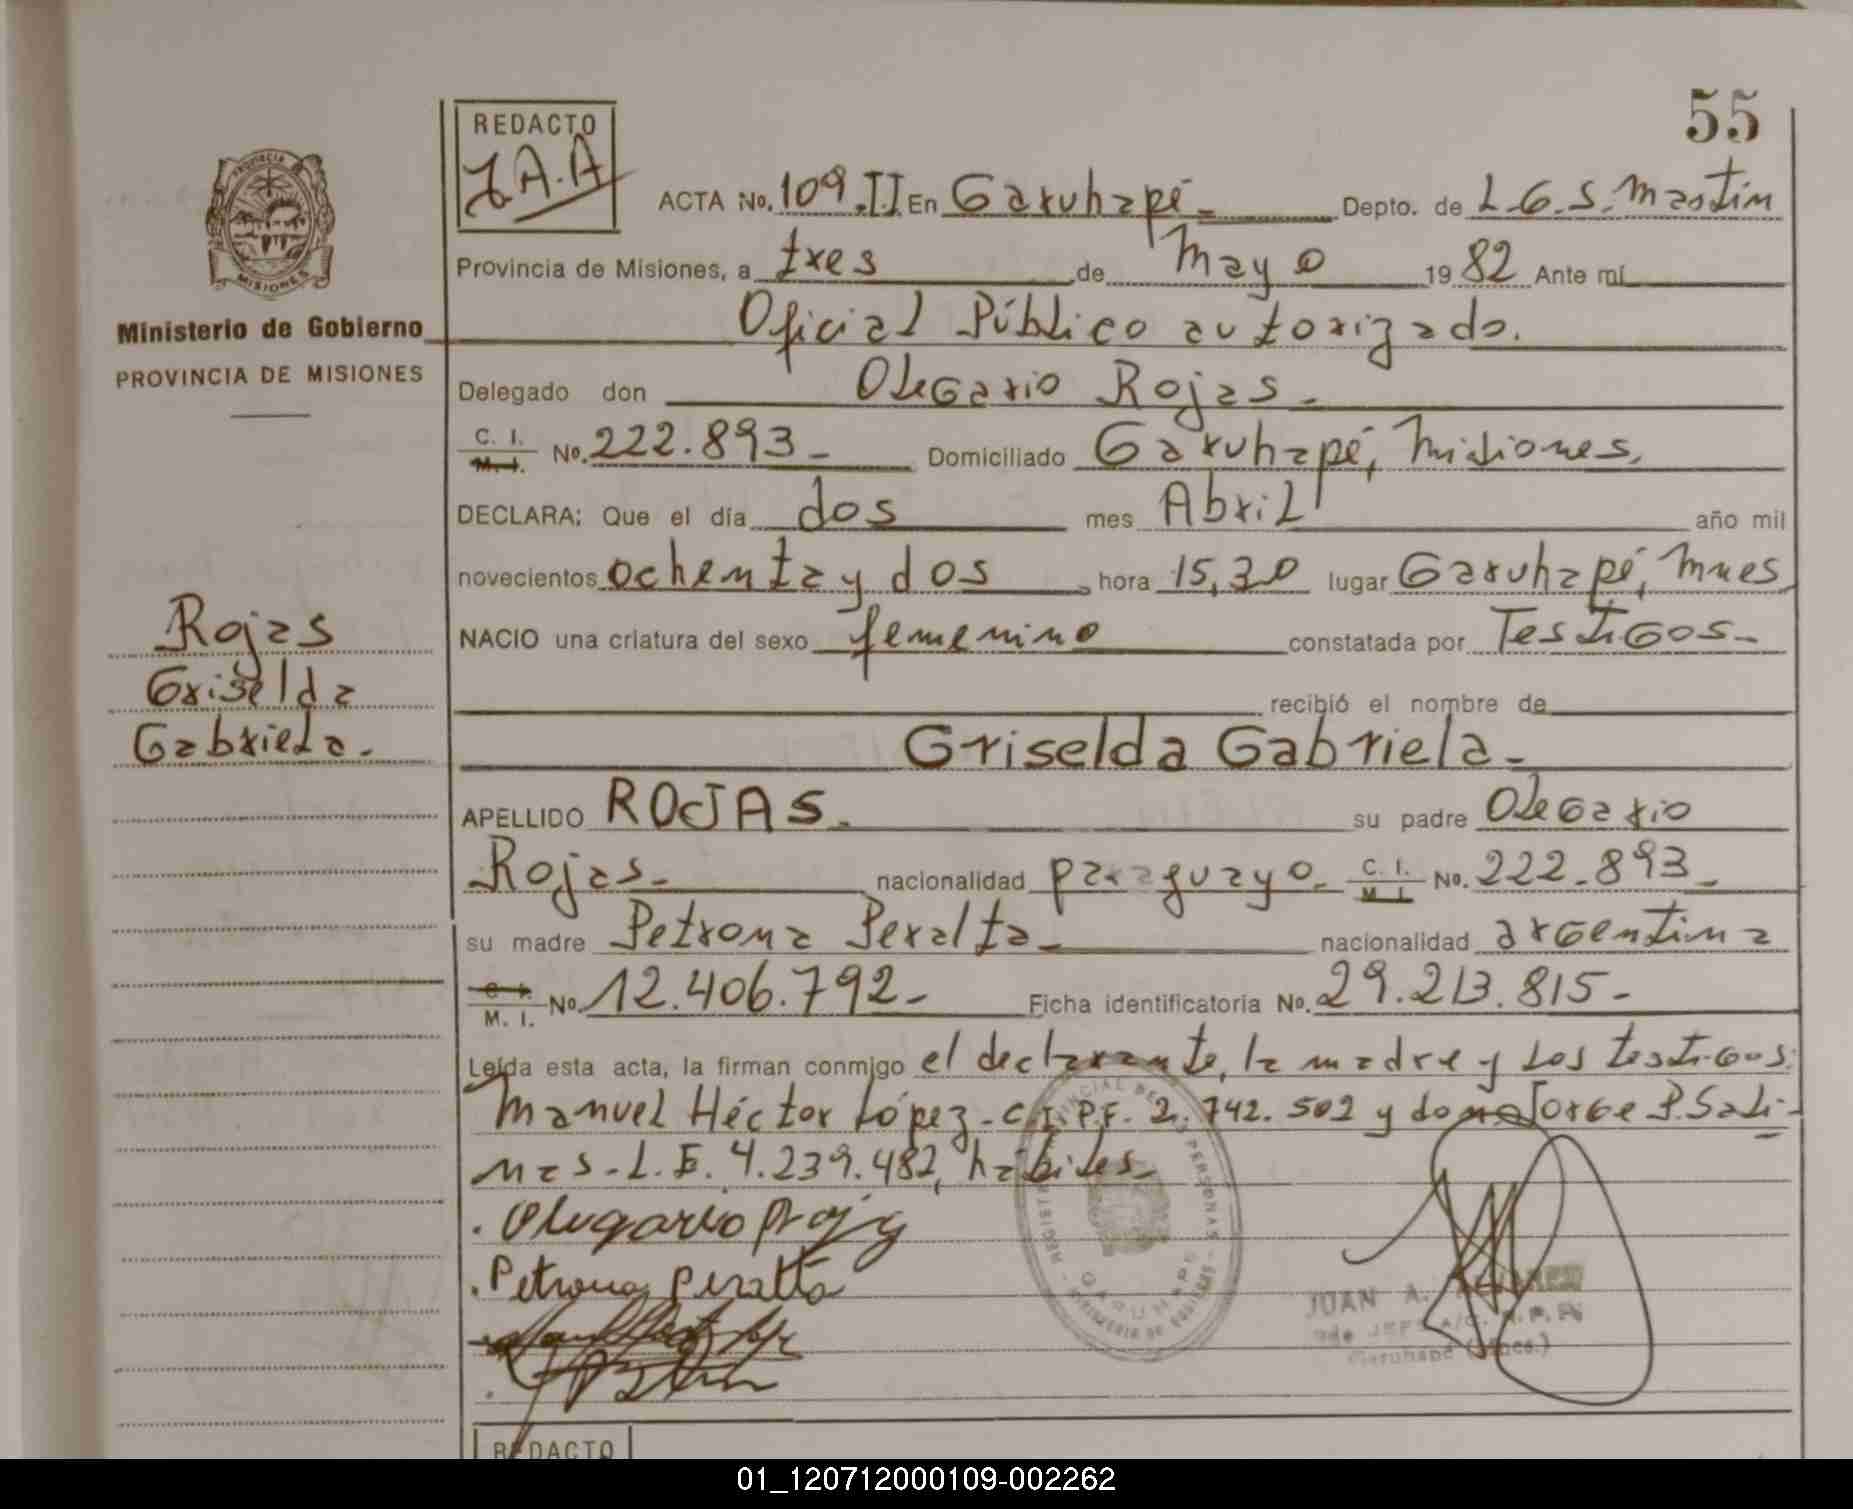 55
REDACTO
J.A.A
ACTA No. 109.II En Garuhapé Depto. de L.G.S. Martín
Provincia de Misiones, a tres de Mayo 1982 Ante mí
Oficial Público autorizado.
Delegado don Olegario Rojas.
C. I. M. I. No. 222.893 Domiciliado Garuhapé, Misiones.
DECLARA: Que el día dos mes Abril año mil
novecientos ochenta y dos, hora 15,30 lugar Garuhapé, Mnes
NACIO una criatura del sexo femenino constatada por Testigos
recibió el nombre de
Griselda Gabriela
APELLIDO ROJAS. su padre Olegario
Rojas nacionalidad paraguayo. C. I. M. I. No. 222.893
su madre Petrona Peralta nacionalidad argentina
C. I. M. I. No. 12.406.792 Ficha identificatoria No. 29.213.815
Leída esta acta, la firman conmigo el declarante, la madre y los testigos:
Manuel Héctor López - C.I.P.F. 2.742.502 y don Jorge P. Sali-
nas - L.E. 4.239.482, hábiles
Petrona Peralta
JUAN A.
Garuhapé (Mnes.)
GARUHAPE
PROVINCIA
MISIONES
Ministerio de Gobierno
PROVINCIA DE MISIONES
Rojas
Griselda
Gabriela.
REDACTO
01_120712000109-002262